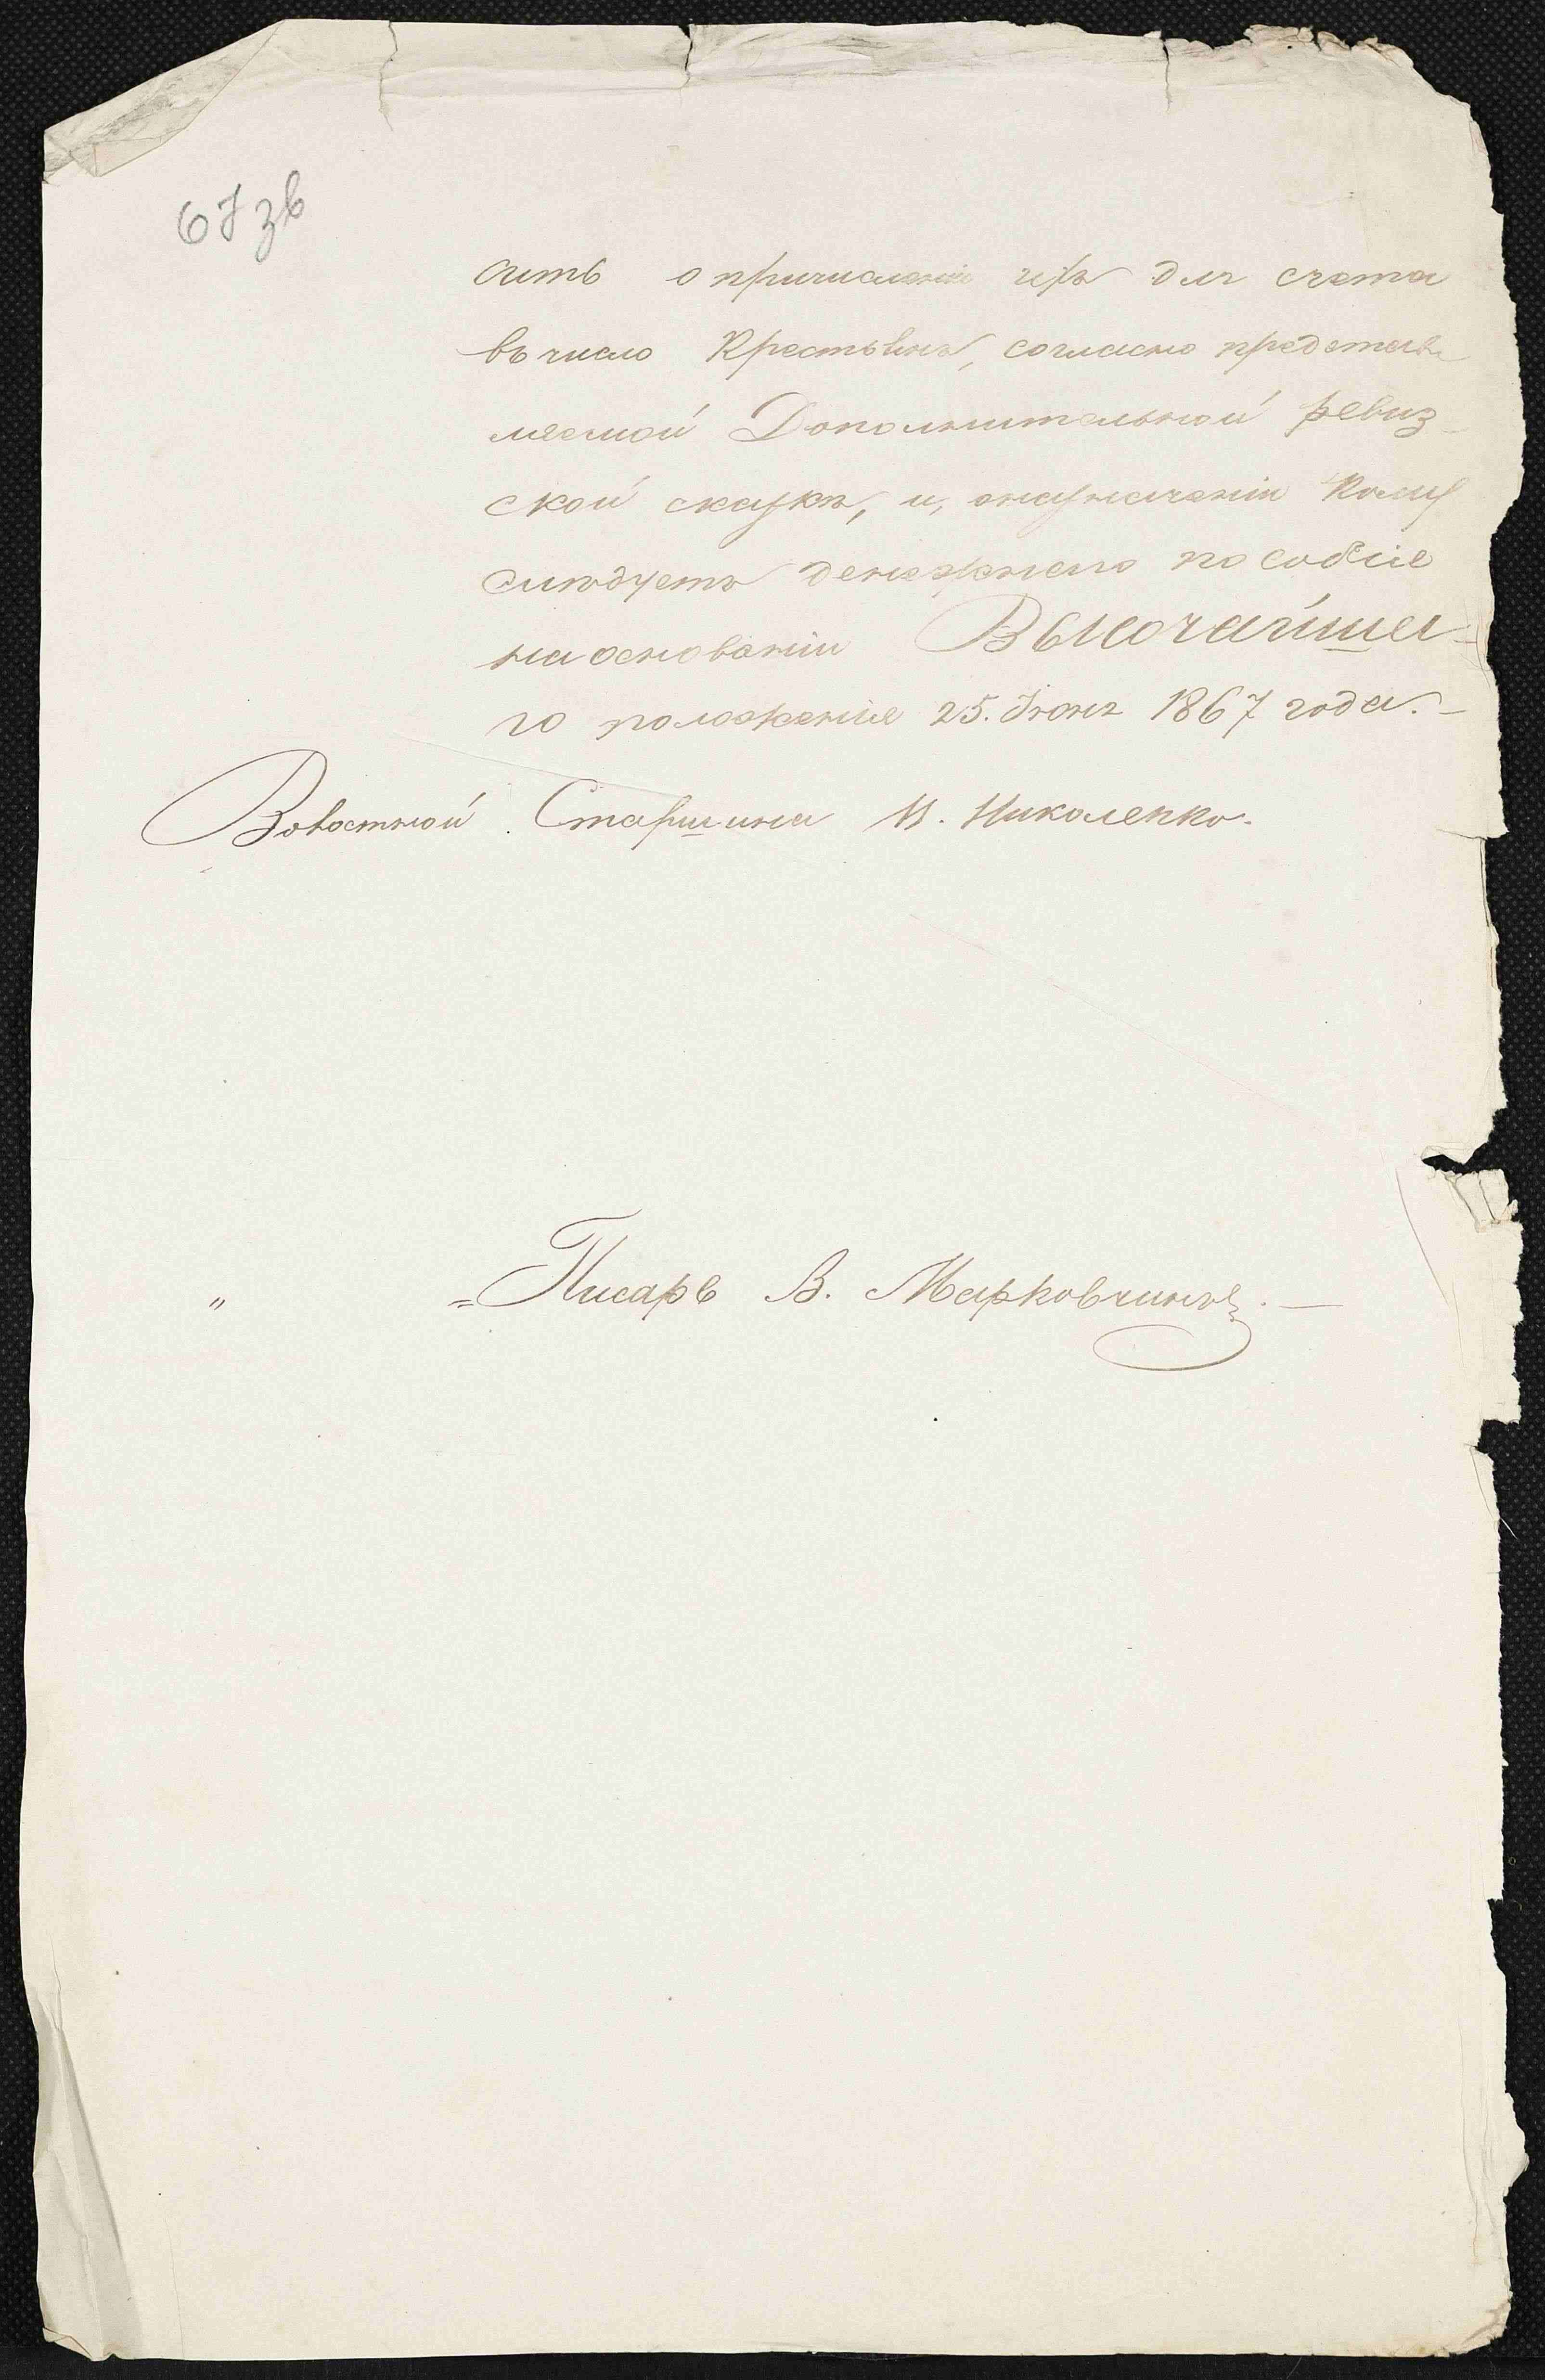 67 зв
сить о причислении ихъ для счета
въ число Крестьянъ, согласно представ
ляемой Дополнительной ревиз_
ской сказкѣ, и, оназначении кому
слѣдуетъ денежнаго пособие
на основании Высочайша_
го положения 25. Июня 1867 года._
Волостной Старшина И. Николенко.
" =Писарь В. Марковчинъ. —